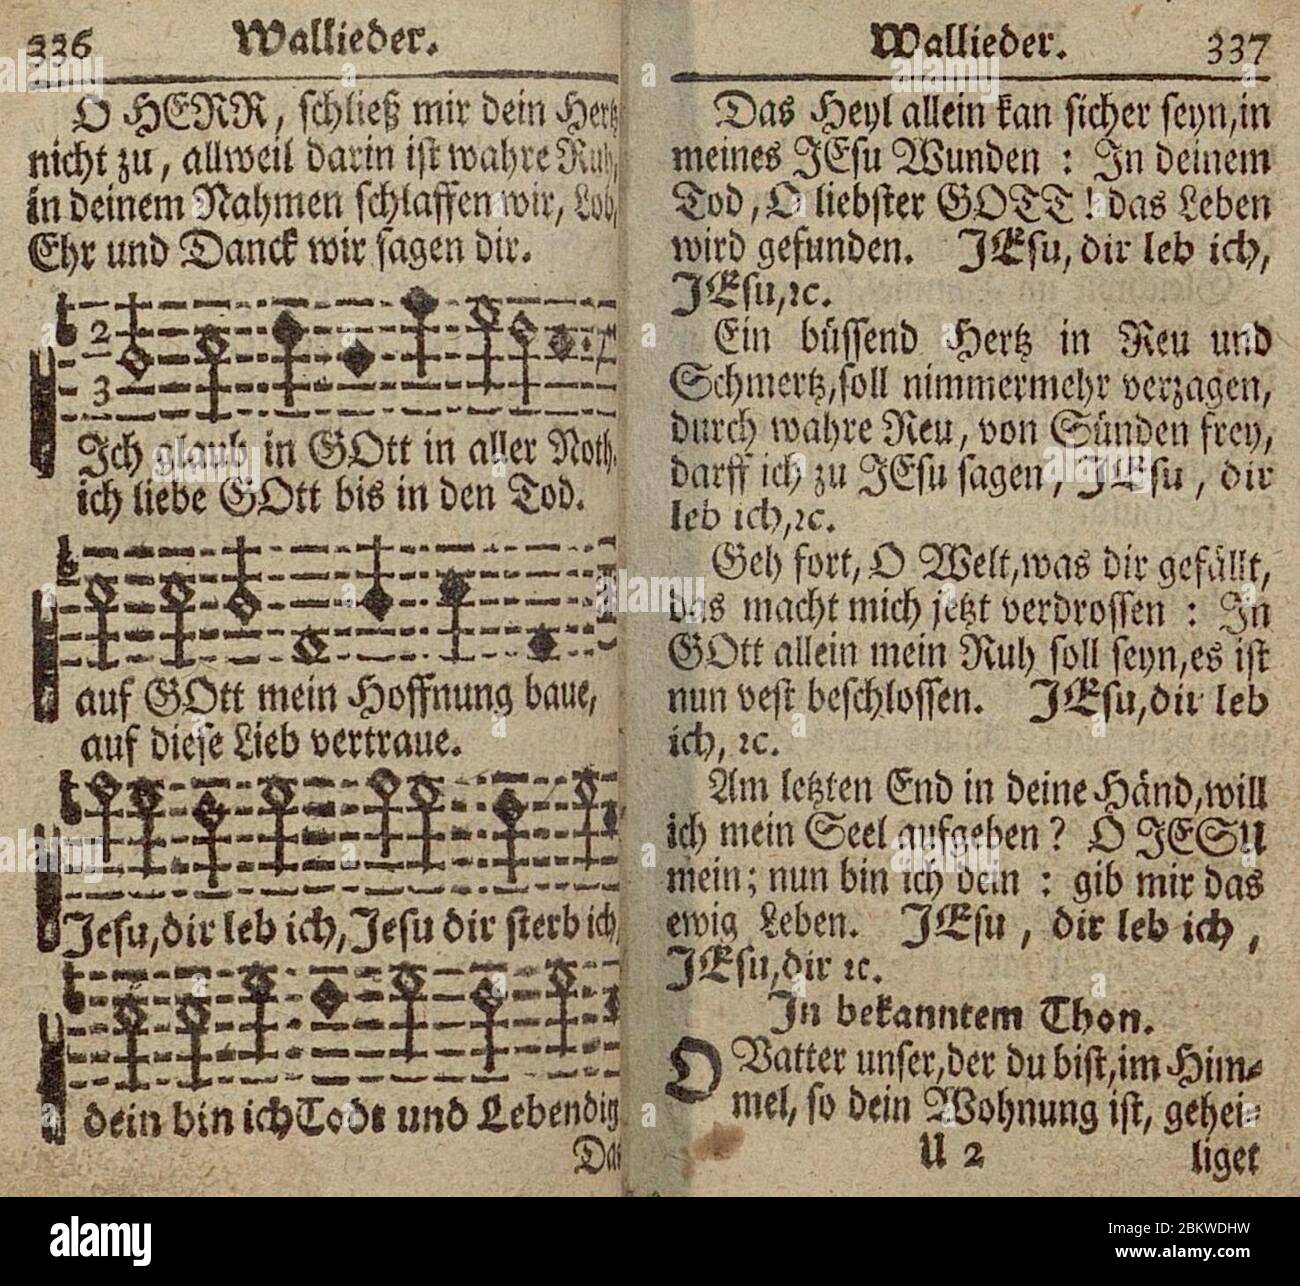 336 Wallieder.
O HERR, schließ mir dein Hertz
nicht zu, allweil darin ist wahre Ruh,
in deinem Nahmen schlaffen wir, Lob,
Ehr und Danck wir sagen dir.
2
3
Ich glaub in GOtt in aller Noth,
ich liebe GOtt bis in den Tod.
auf GOtt mein Hoffnung baue,
auf diese Lieb vertraue.
Jesu, dir leb ich, Jesu dir sterb ich,
dein bin ich Todt und Lebendig
Das
Wallieder. 337
Das Heyl allein kan sicher seyn, in
meines JEsu Wunden : In deinem
Tod, O liebster GOTT ! das Leben
wird gefunden. JEsu, dir leb ich,
JEsu, ꝛc.
Ein büssend Hertz in Reu und
Schmertz, soll nimmermehr verzagen,
durch wahre Reu, von Sünden frey,
darff ich zu JEsu sagen, JEsu, dir
leb ich, ꝛc.
Geh fort, O Welt, was dir gefällt,
das macht mich jetzt verdrossen : In
GOtt allein mein Ruh soll seyn, es ist
nun vest beschlossen. JEsu, dir leb
ich, ꝛc.
Am letzten End in deine Händ, will
ich mein Seel aufgeben? O JESU
mein; nun bin ich dein : gib mir das
ewig Leben. JEsu, dir leb ich,
JEsu, dir ꝛc.
In bekanntem Thon.
O Vatter unser, der du bist, im Him=
mel, so dein Wohnung ist, gehei=
U 2 liget
alamy
Image ID: 2BKWDHW
www.alamy.com